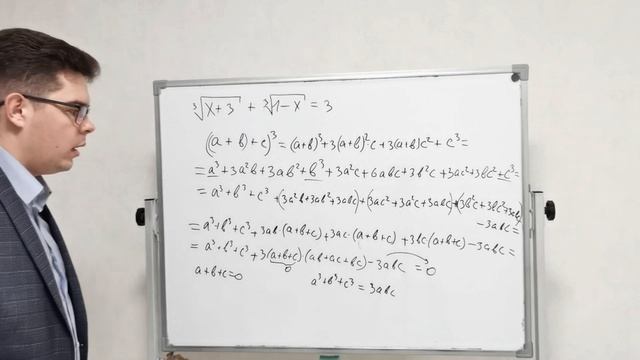 ∛(x+3) + ∛(1-x) = 3
((a+b)+c)³ = (a+b)³+3(a+b)²c+3(a+b)c²+c³=
= a³+3a²b+3ab²+b³+3a²c+6abc+3b²c+3ac²+3bc²+c³=
= a³+b³+c³+(3a²b+3ab²+3abc)+(3ac²+3a²c+3abc)+(3b²c+3bc²+3abc)
-3abc=
= a³+b³+c³+3ab·(a+b+c)+3ac·(a+b+c)+3bc(a+b+c)-3abc=
= a³+b³+c³+3(a+b+c)(ab+ac+bc)-3abc=0
0
a+b+c=0 a³+b³+c³=3abc